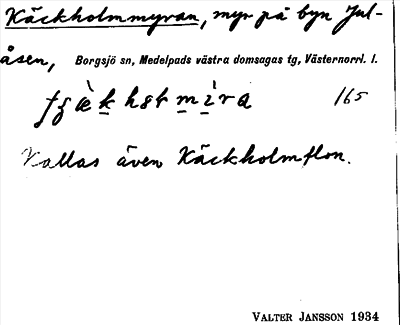 Käckholmmyran, myr på byn Jul-
åsen, Borgsjö sn, Medelpads västra domsagas tg, Västernorrl. l.
165
Kallas även Käckholmflon.
VALTER JANSSON 1934